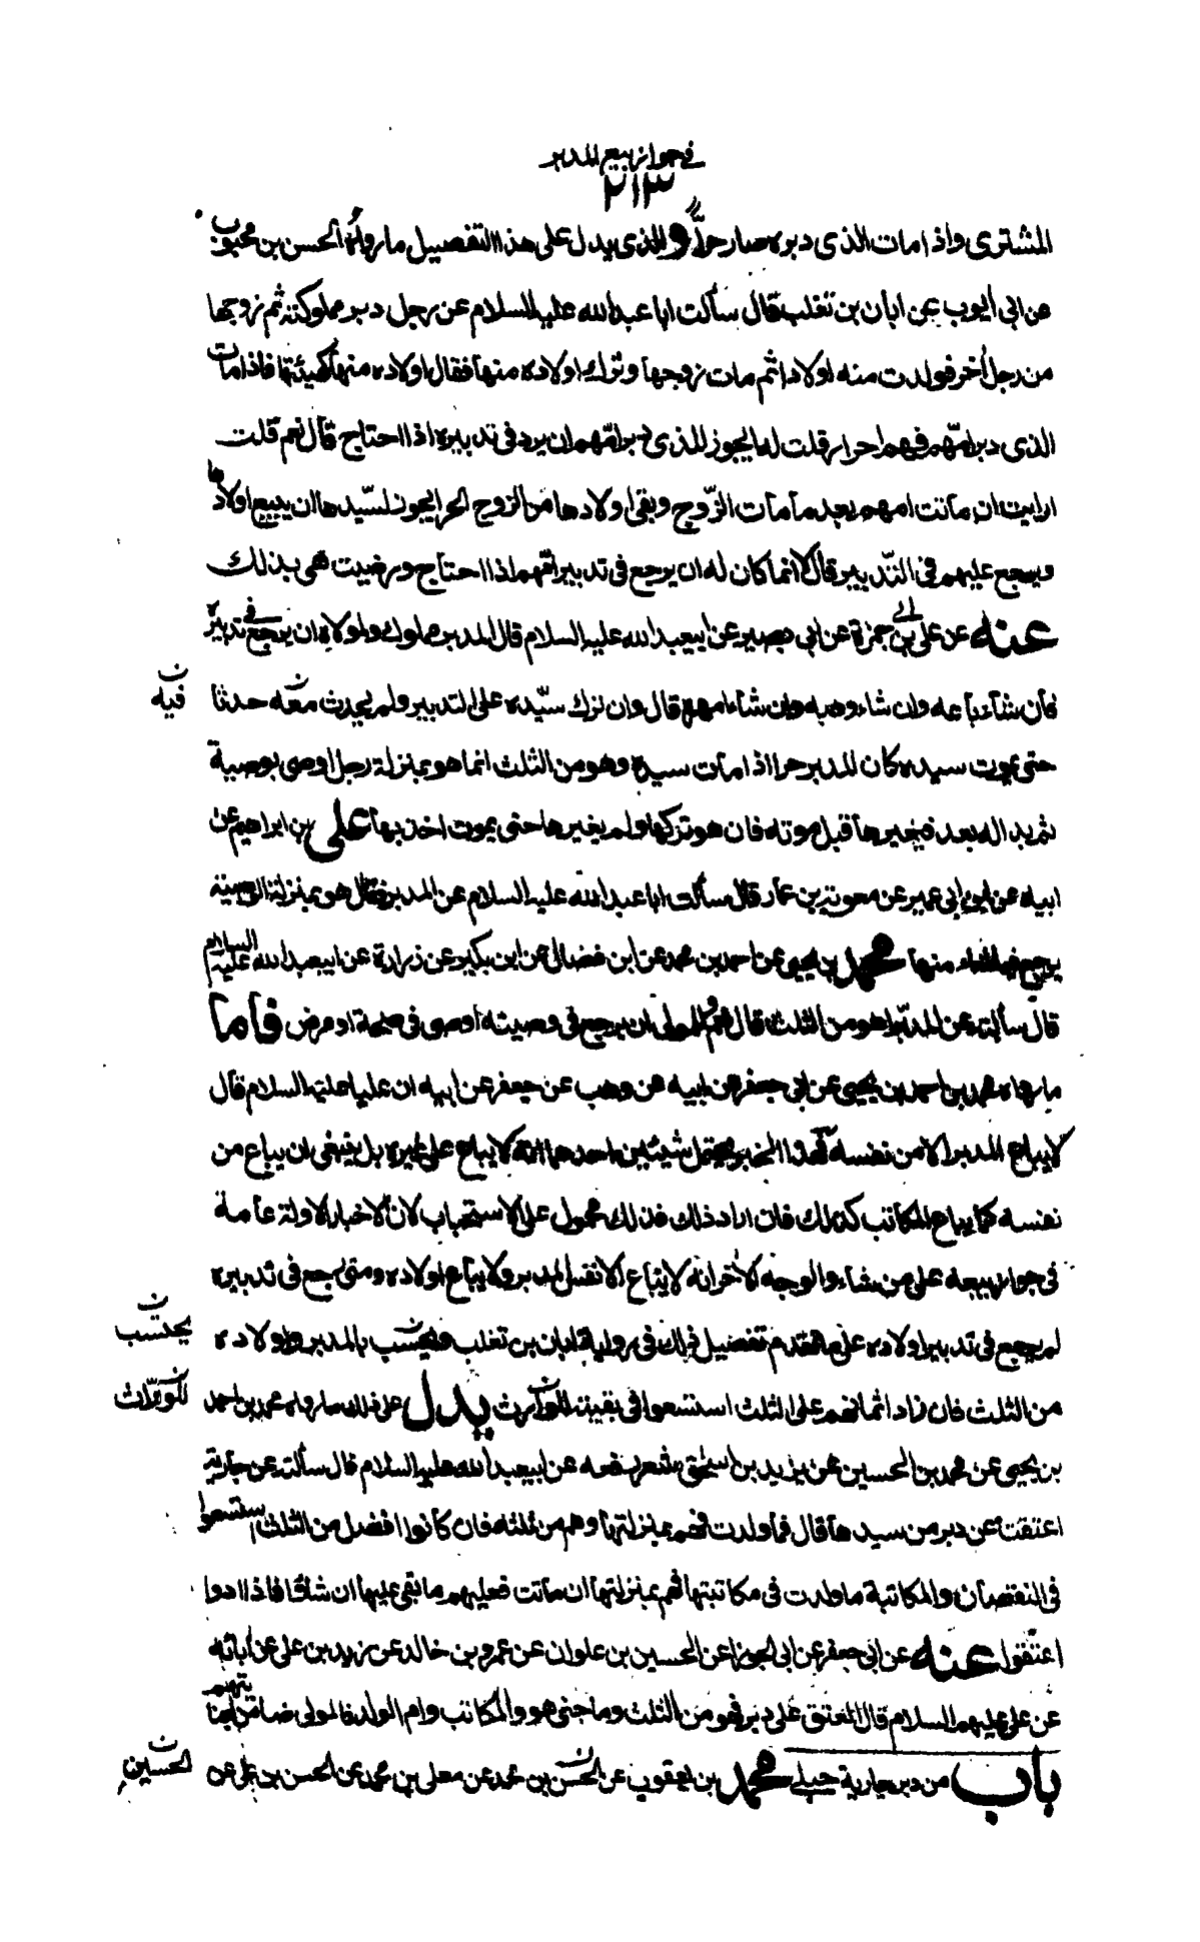 في جواز بيع المدبر
٢١٣
المشترى واذا مات الذى دبره صار حرّا والذى يدل على هذا التفصيل ما رواه الحسن بن محبوب
عن ابى ايوب عن ابان بن تغلب قال سألت ابا عبد الله عليه السلام عن رجل دبر مملوكته ثم زوجها
من رجل آخر فولدت منه اولادا ثم مات زوجها وترك اولاده منها فقال اولاده منها كهيئتها فاذا مات
الذى دبر امّهم فهم احرار قلت له ايجوز للذى دبر امّهم ان يرد فى تدبيره اذا احتاج قال نعم قلت
ارايت ان ماتت امهم بعد ما مات الزّوج وبقى اولادها من الزوج الحر ايجوز لسيّدها ان يبيع اولادها
ويرجع عليهم فى التّدبير قال لا انما كان له ان يرجع فى تدبير امّهم اذا احتاج ورضيت هى بذلك
عنه عن على بن ابي حمزة عن ابى بصير عن ابيعبد الله عليه السلام قال المدبر مملوك ولمولاه ان يرجع في تدبيره
فان شاء باعه وان شاء وهبه وان شاء امهره قال وان ترك سيّده على التدبير ولم يحدث معه حدثا
فيه ن
حتى يموت سيده كان المدبر حرا اذا مات سيده وهو من الثلث انما هو بمنزلة رجل اوصى بوصية
ثم بدا له بعد فيغيرها قبل موته فان هو تركها ولم يغيرها حتى يموت اخذ بها على بن ابراهيم عن
ابيه عن ابن ابى عمير عن معوية بن عمار قال سألت ابا عبد الله عليه السلام عن المدبر فقال هو بمنزلة الوصية
يرجع فيما شاء منها محمد بن يحيى عن احمد بن محمد عن ابن فضال عن ابن بكير عن زرارة عن ابيعبد الله عليه السلام
قال سألته عن المدبر اهو من الثلث قال نعم وللمولى ان يرجع فى وصيته اوصى فى صحة او مرض فاما
ما رواه محمد بن احمد بن يحيى عن ابى جعفر عن ابيه عن وهب عن جعفر عن ابيه ان عليا عليه السلام قال
لا يباع المدبر الا من نفسه فهذا الخبر يحتمل شيئين احدهما انه لا يباع على غيره بل ينبغى ان يباع من
نفسه كما يباع المكاتب كذلك فان اراد ذلك فذلك محمول على الاستحباب لان الاخبار الاولة عامة
فى جواز بيعه على من شاء والوجه الاخر انه لا يباع الا نفس المدبر ولا يباع اولاده ومتى رجع فى تدبيره
لم يرجع فى تدبير اولاده على ما تقدم تفصيل ذلك فى رواية ابان بن تغلب ويحتسب بالمدبر واولاده
يحتسب ن
من الثلث فان زاد اثمانهم على الثلث استسعوا فى بقيته للوارث يدل على ذلك ما رواه محمد بن احمد
للورّاث ن
بن يحيى عن محمد بن الحسين عن يزيد بن اسحق شعر رفعه عن ابيعبد الله عليه السلام قال سألته عن جارية
اعتقت عن دبر من سيدها قال فما ولدت فهم بمنزلتها وهم من ثلثه فان كانوا افضل من الثلث استسعوا
فى النقصان والمكاتبة ما ولدت فى مكاتبتها فهم بمنزلتها ان ماتت فعليهم ما بقى عليها ان شاؤا فاذا ادوا
اعتقوا عنه عن ابى جعفر عن ابى الجوزا عن الحسين بن علوان عن عمرو بن خالد عن زيد بن على عن آبائه
عن على عليهم السلام قال المعتق على دبر فهو من الثلث وما جنى هو والمكاتب وام الولد فالمولى ضامن لجنايتهم
باب من دبر جارية حبلى محمد بن يعقوب عن الحسن بن محمد عن معلى بن محمد عن الحسن بن على عن
الحسين ن